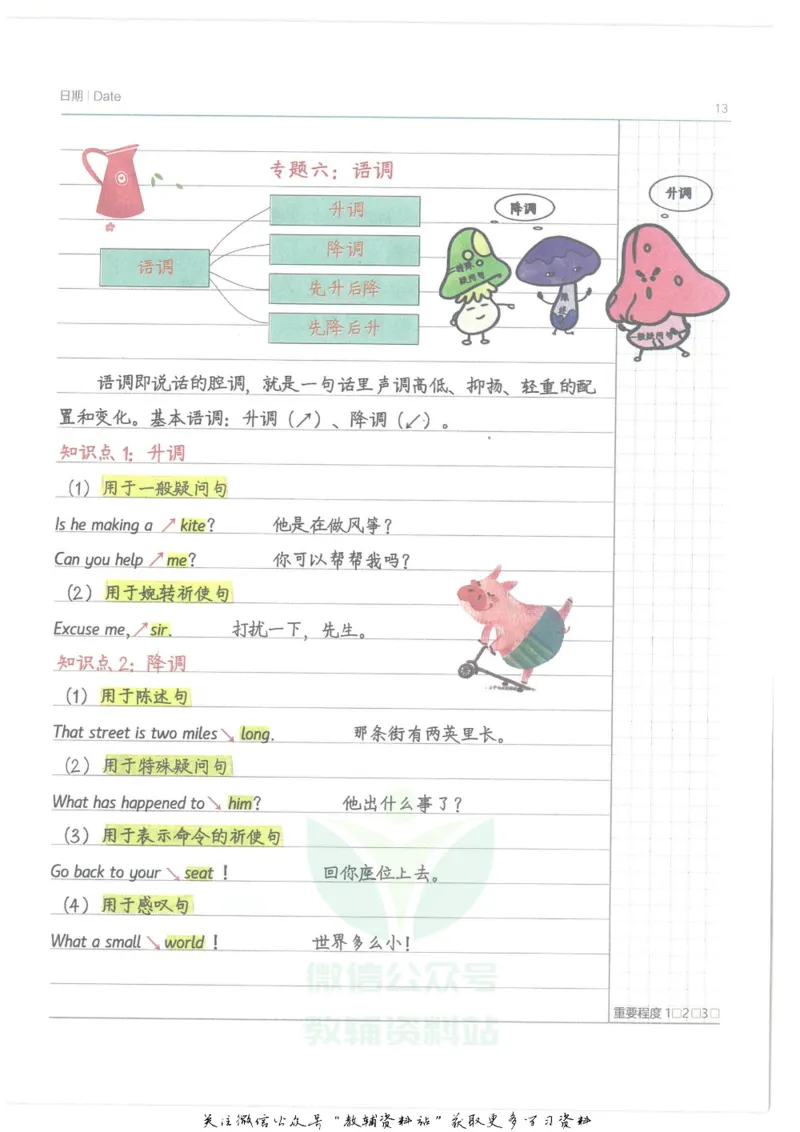 日期 | Date
13
专题六：语调
升调
降调
语调
先升后降
先降后升
降调
升调
特殊
疑问句
一般疑问句
语调即说话的腔调，就是一句话里声调高低、抑扬、轻重的配
置和变化。基本语调：升调（↗）、降调（↙）。
知识点 1：升调
（1）用于一般疑问句
Is he making a ↗ kite? 他是在做风筝？
Can you help ↗ me? 你可以帮帮我吗？
（2）用于婉转祈使句
Excuse me, ↗ sir. 打扰一下，先生。
知识点 2：降调
（1）用于陈述句
That street is two miles ↘ long. 那条街有两英里长。
（2）用于特殊疑问句
What has happened to ↘ him? 他出什么事了？
（3）用于表示命令的祈使句
Go back to your ↘ seat ! 回你座位上去。
（4）用于感叹句
What a small ↘ world ! 世界多么小！
微信公众号
教辅资料站
重要程度 1□2□3□
关注微信公众号“教辅资料站”获取更多学习资料